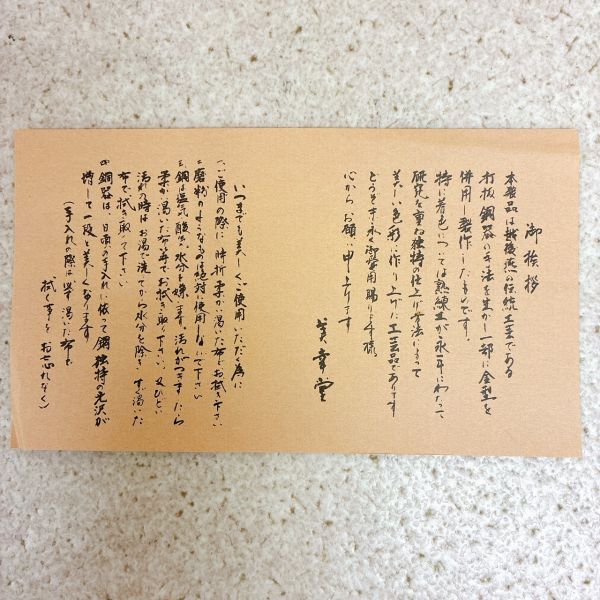 御挨拶
本製品は越後燕の伝統工芸である
打抜銅器の手法を生かし一部に金型を
併用し製作したものです。
特に着色については熟練工が永年にわたって
研究を重ね独特の仕上げ方法によって
美しい色彩に作り上げた工芸品であります
どうぞ末永く御愛用賜りますよう
心からお願い申し上げます
美幸堂
いつまでも美しくご使用いただく為に
一、ご使用の際に時折柔かい濡いた布でお拭き下さい
二、磨粉のようなものは絶対に使用しないで下さい
三、銅は塩気、酸気、水分を嫌います。汚れがつきましたら
柔かい濡いた布等でお拭き取り下さい。又ひどい
汚れの時はお湯で洗ってから水分を除き、すぐ濡いた
布で拭き取って下さい
四、銅器は、日頃の手入れに依って銅独特の光沢が
増して一段と美しくなります
(手入れの際は必ず濡いた布で
拭く事をお忘れなく)